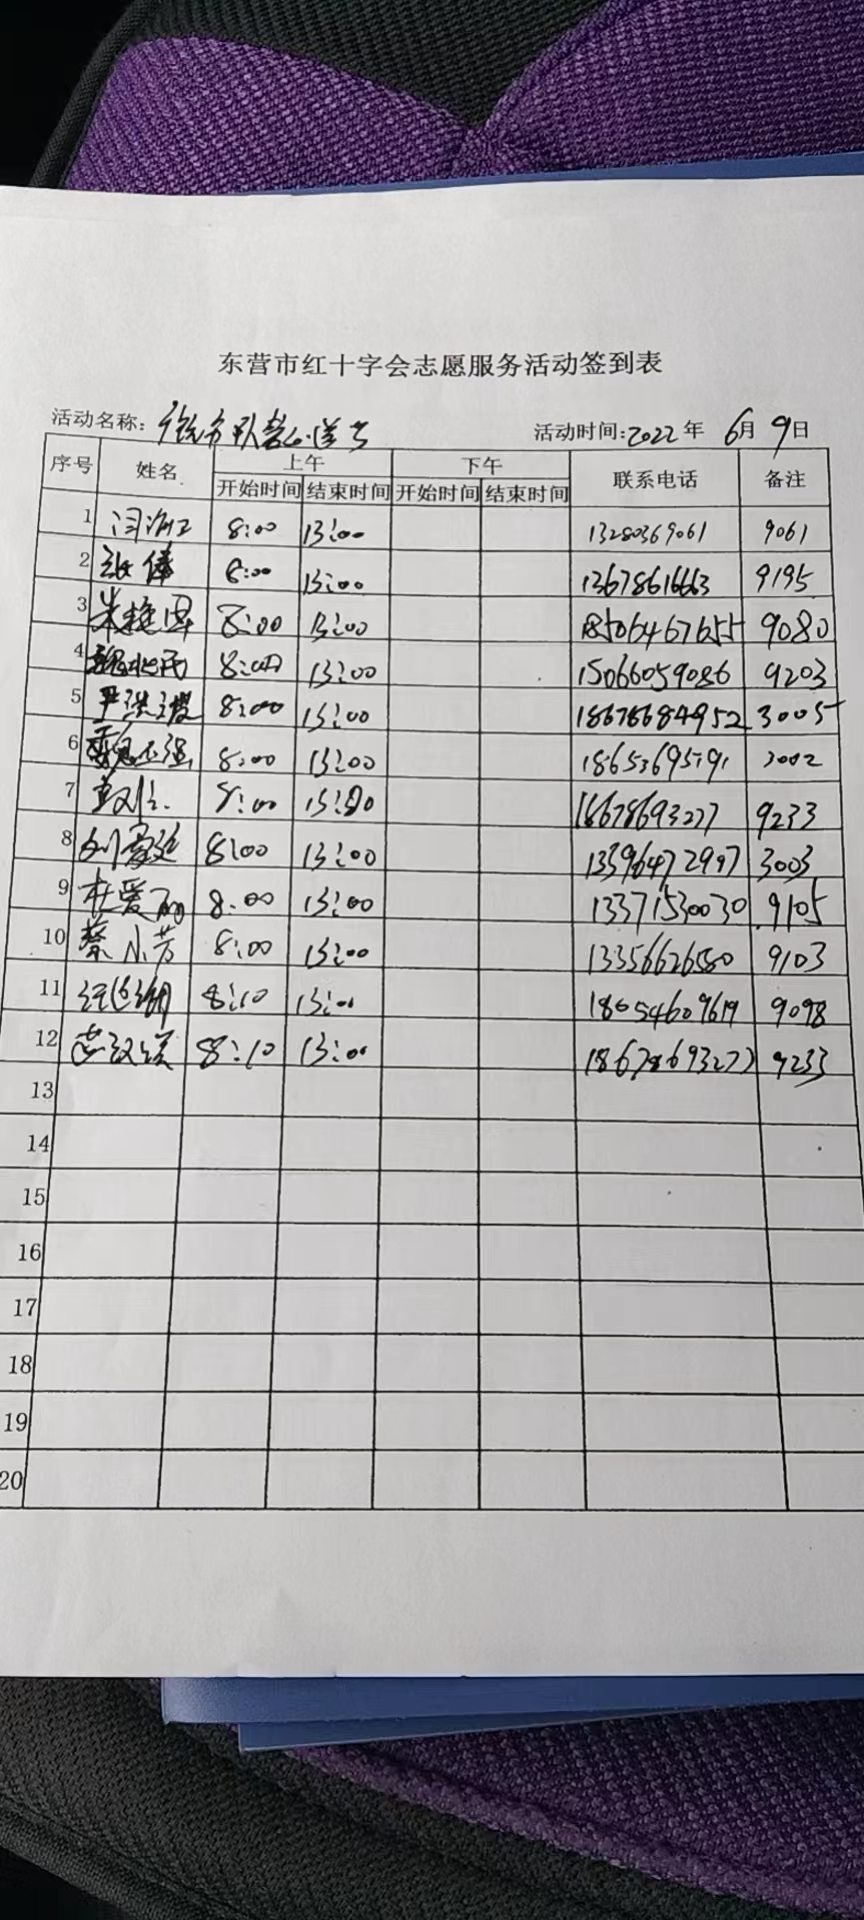 东营市红十字会志愿服务活动签到表
活动名称: 活动时间:2022年 6月 9日
序号 姓名 上午 下午 联系电话 备注
开始时间 结束时间 开始时间 结束时间
1 8:00 13:00 13280369061 9061
2 8:00 13:00 13678616663 9195
3 朱艳 8:00 13:00 18506467655 9080
4 8:00 13:00 15066059086 9203
5 尹洪 8:00 13:00 18678684952 3005
6 8:00 13:00 18653695791 3002
7 8:00 13:00 18678693277 9233
8 刘 8:00 13:00 13396472997 3003
9 杜爱丽 8:00 13:00 13371530030 9105
10 蔡小芳 8:00 13:00 13356626580 9103
11 8:10 13:00 18054609619 9098
12 8:10 13:00 18678693277 9233
13
14
15
16
17
18
19
20